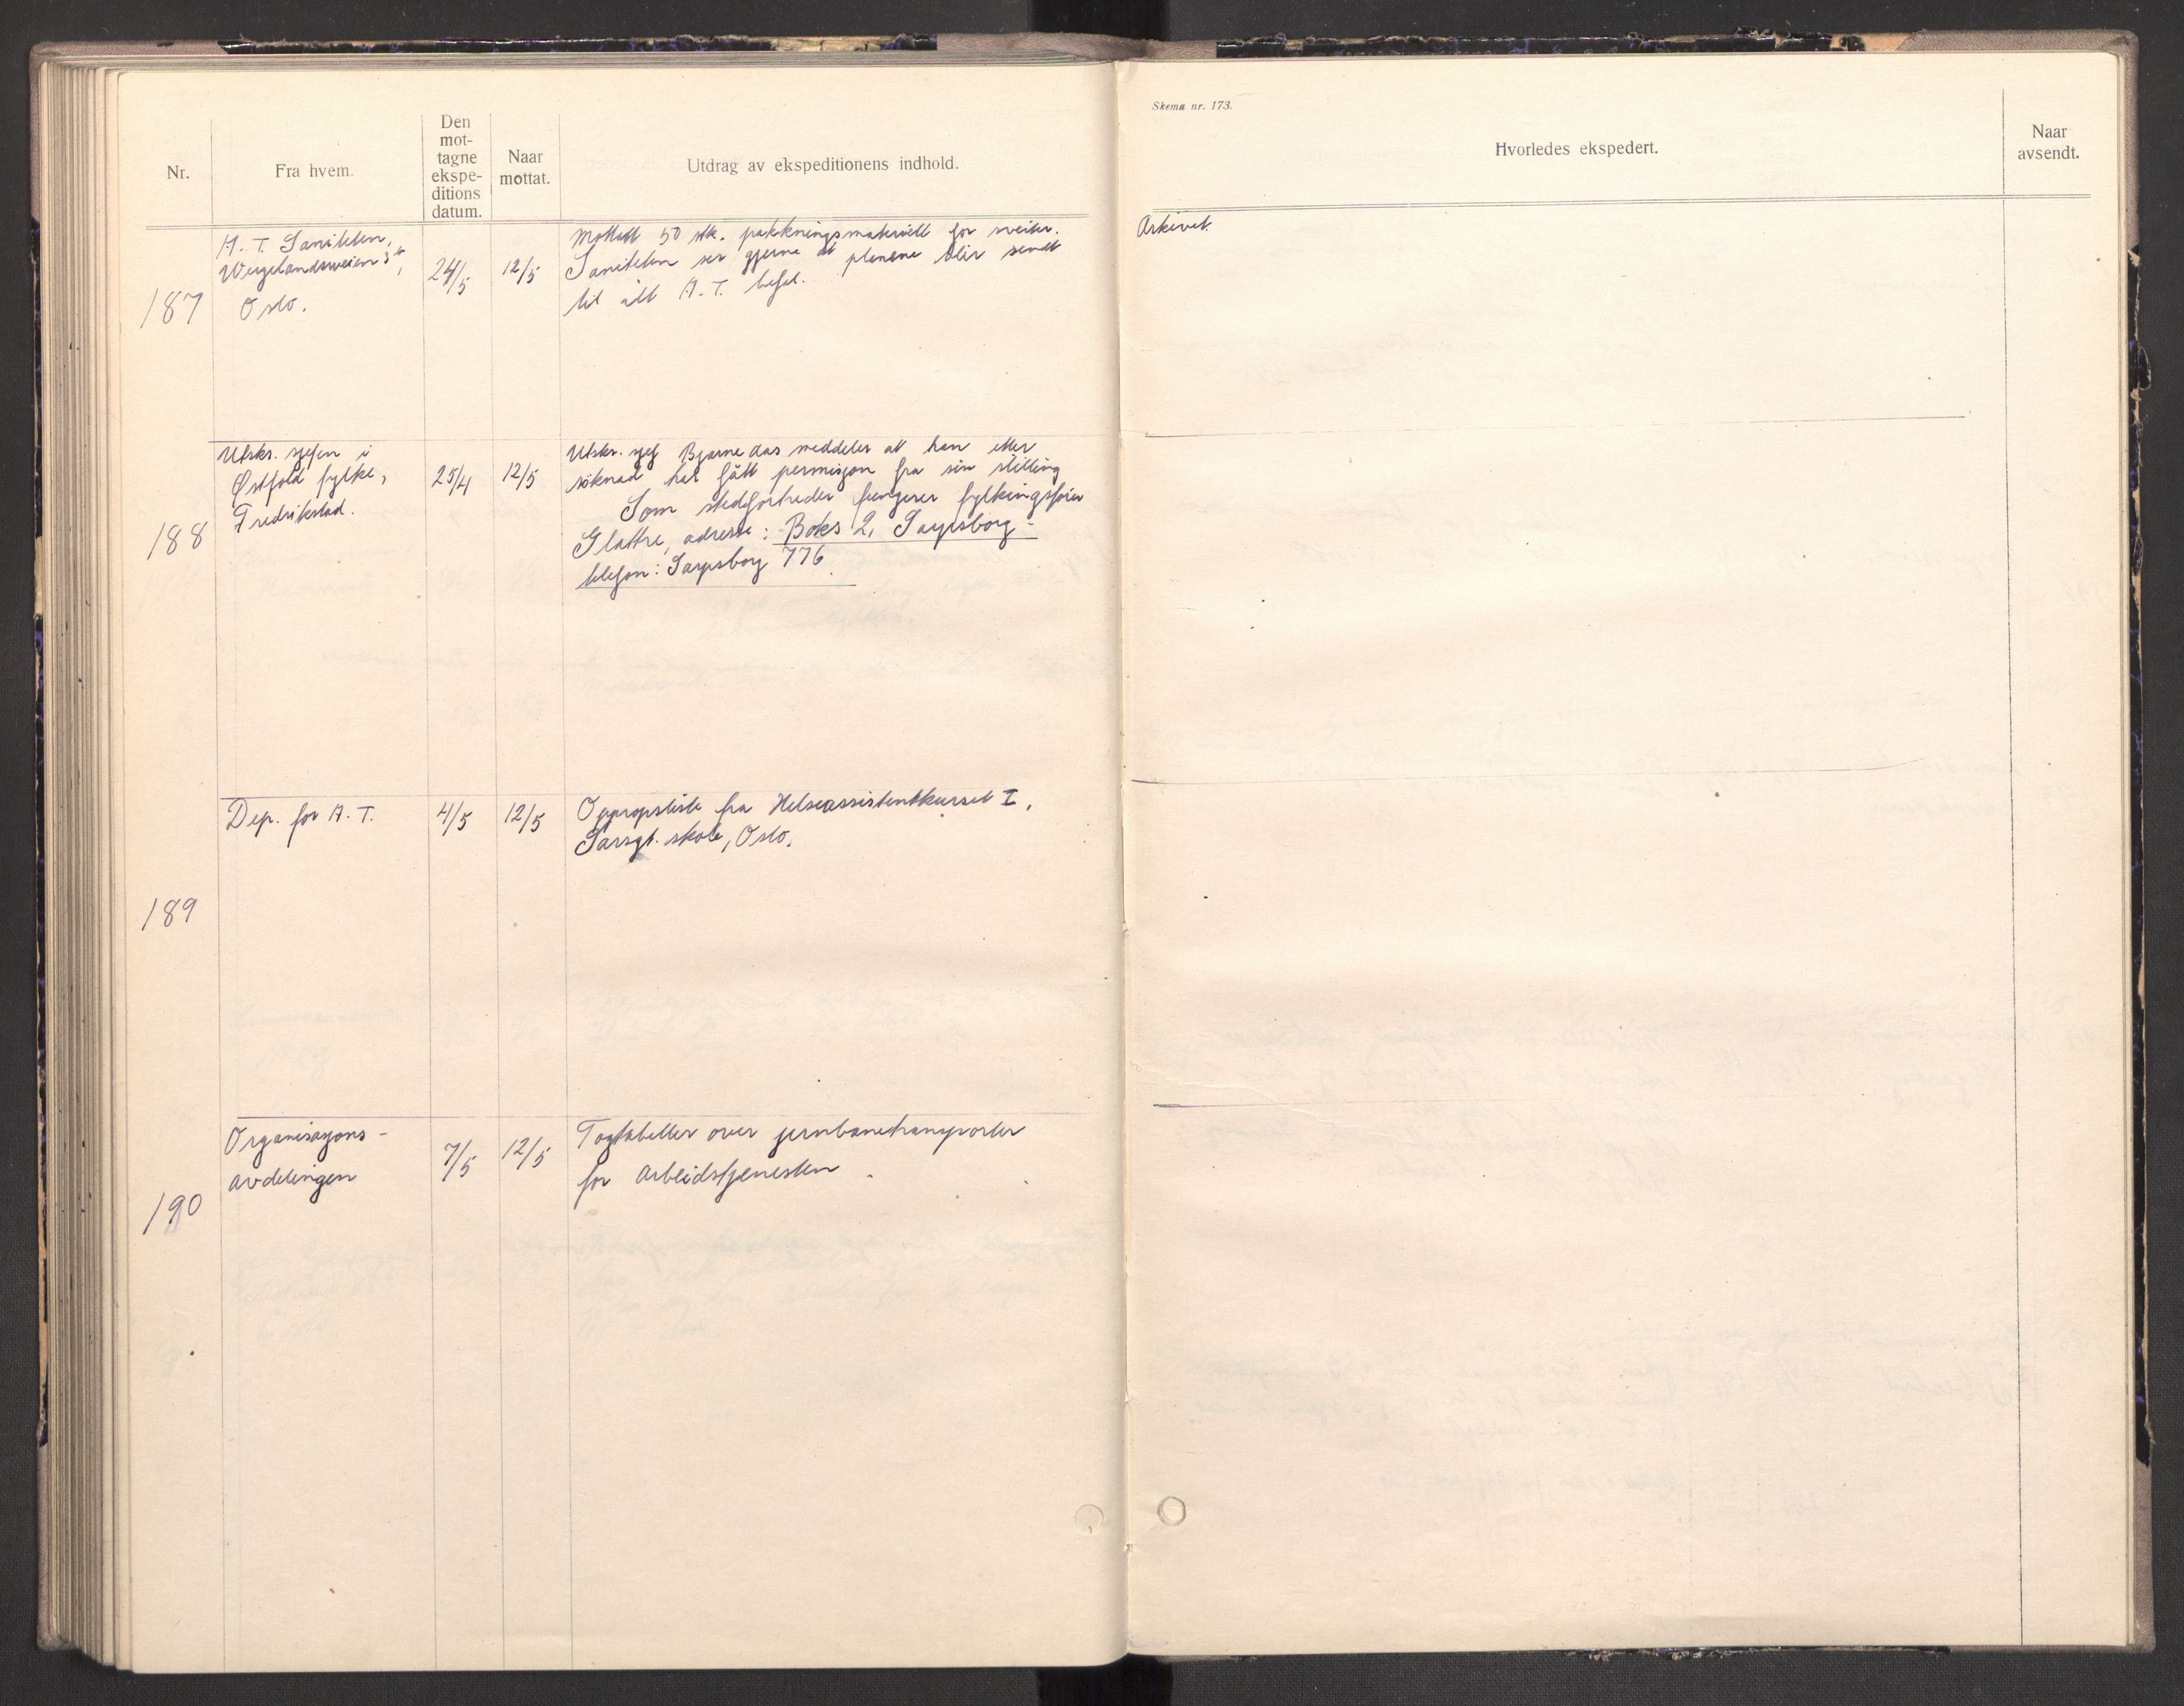 Nr.
Fra hvem.
Den
mot-
tagne
ekspe-
ditions
datum.
Naar
mottat.
Utdrag av ekspeditionens indhold.
Skema nr. 173.
Hvorledes ekspedert.
Naar
avsendt.
187
A. T. Saniteten,
Wergelandsveien 3b,
Oslo.
24/5
12/5
Mottatt 50 stk. pakkningsmateriell for sveiter.
Saniteten ser gjerne at planene blir sendt
til alt A. T. befal.
Arkivet.
188
Utskr. sjefen i
Østfold fylke,
Fredrikstad.
25/4
12/5
Utskr. sjef Bjørnedas meddeler at han etter
söknad har fått permisjon fra sin stilling
Som stedfortreder fungerer fylkingsfører
Glattre, adresse: Boks 2, Sarpsborg -
telefon: Sarpsborg 776.
189
Dep. for A. T.
4/5
12/5
Oppropsliste fra Helseassistentkurset I,
Sarsgt. skole, Oslo.
190
Organisasjons-
avdelingen
7/5
12/5
Togtabeller over jernbanetransporter
for Arbeidstjenesten.